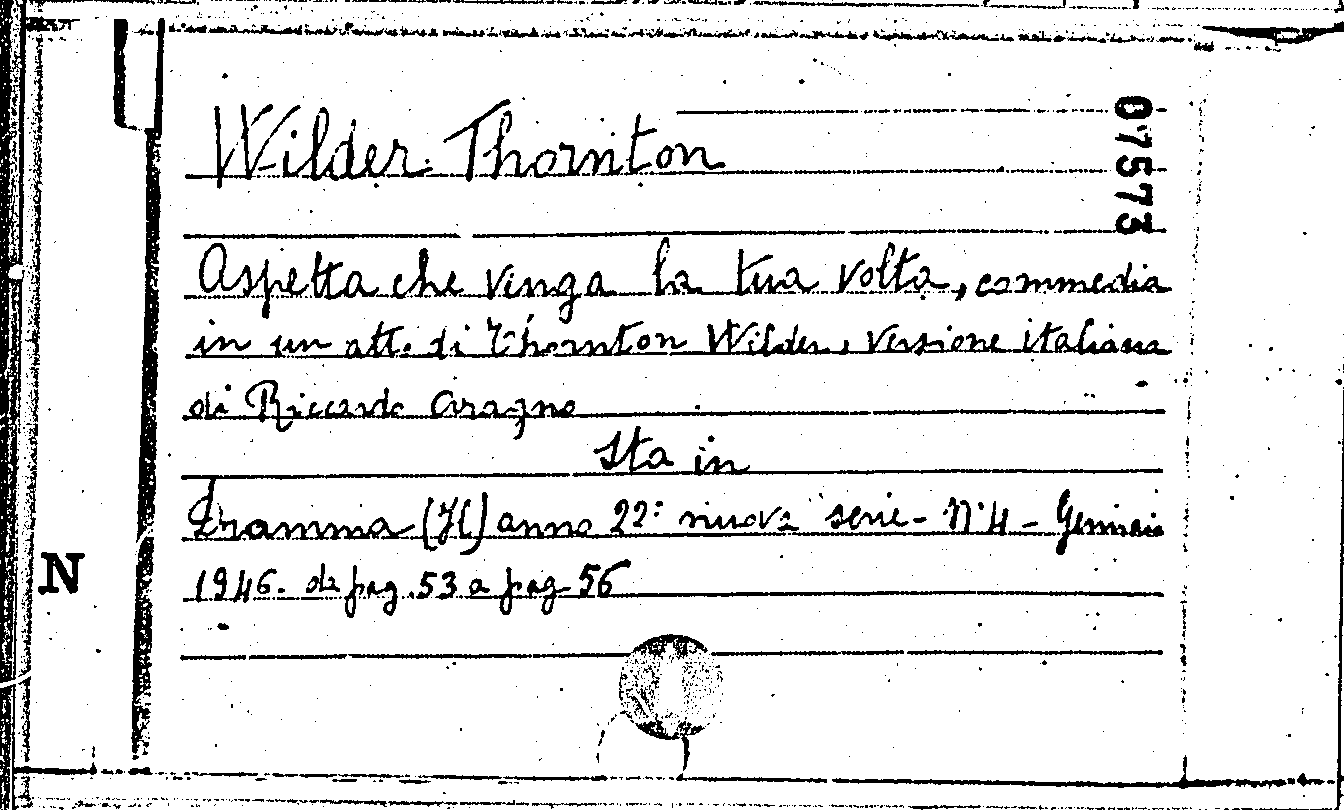 07573
Wilder Thornton
Aspetta che venga la tua volta, commedia
in un atto di Thornton Wilder, versione italiana
di Riccardo Aragno
Sta in
Dramma (Il) anno 22° nuova serie - N° 4 - Gennaio
1946. da pag. 53 a pag. 56
N